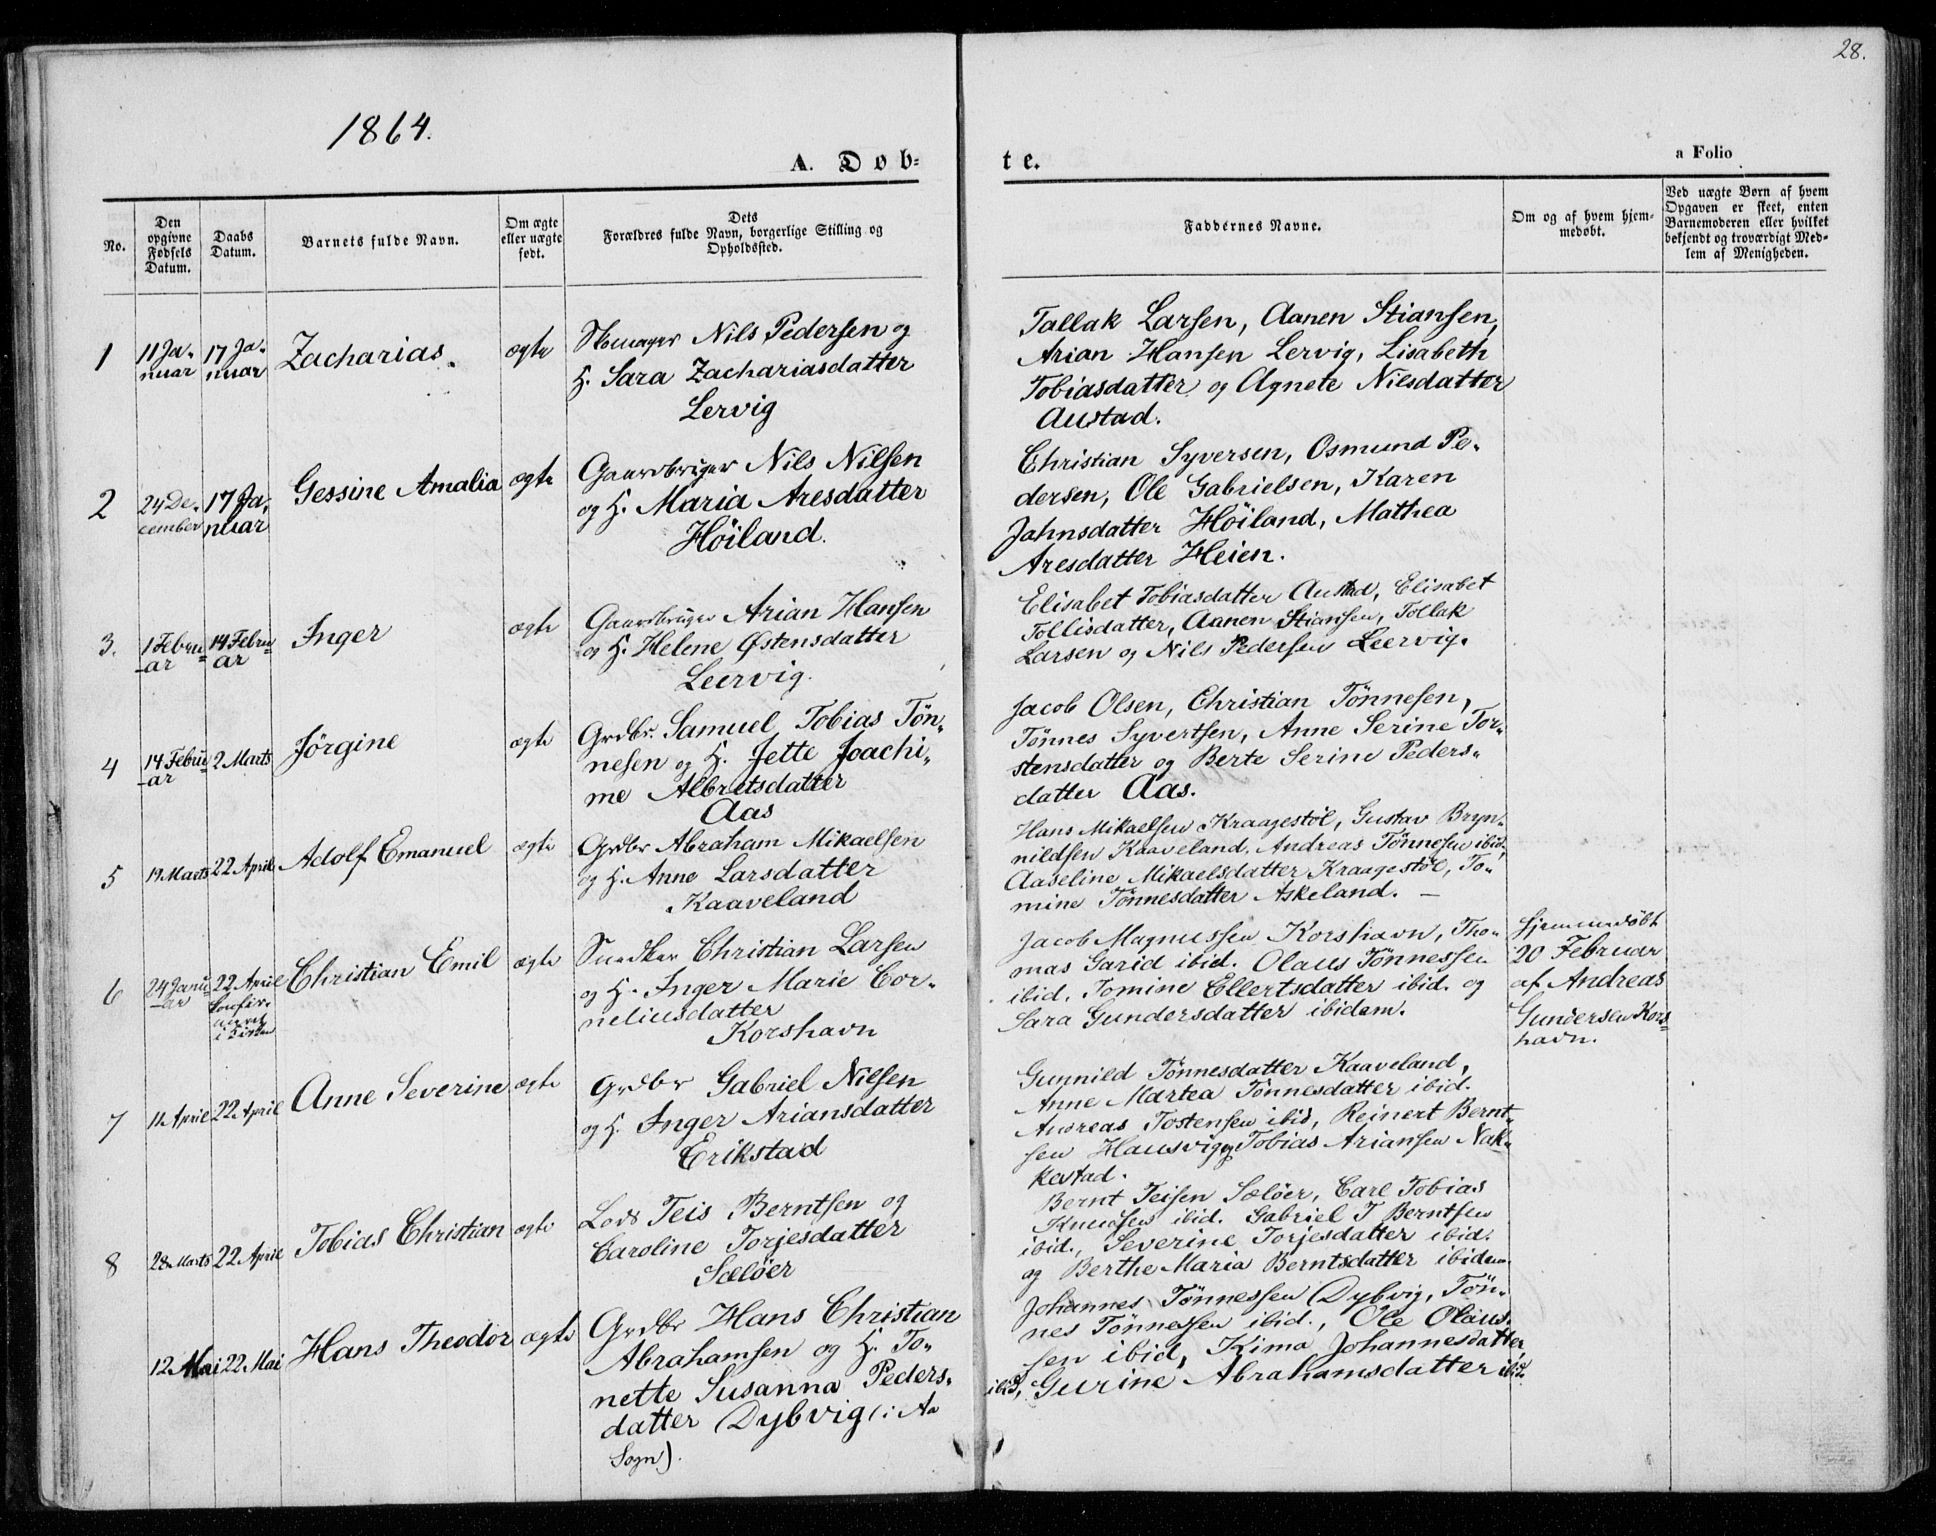 28.
1864.
A. Døb-
te.
a Folio
No.
Den
opgivne
Fødsels
Datum.
Daabs
Datum.
Barnets fulde Navn.
Om ægte
eller uægte
født.
Dets
Forældres fulde Navn, borgerlige Stilling og
Opholdssted.
Faddernes Navne.
Om og af hvem hjem-
medøbt.
Ved uægte Børn af hvem
Opgaven er skeet, enten
Barnemoderen eller hvilket
bekjendt og troværdigt Med-
lem af Menigheden.
1
11 Ja-
nuar
17 Ja-
nuar
Zacharias.
ægte
Skomager Nils Pedersen og
H. Sara Zachariasdatter
Lervig
Tallak Larsen, Aanen Stiansen,
Arian Hansen Lervig, Lisabeth
Tobiasdatter og Agnete Nilsdatter
Austad.
2
24 De-
cember
17 Ja-
nuar
Gessine Amalia
ægte
Gaardbruger Nils Nilsen
og H. Maria Aresdatter
Høiland.
Christian Syversen, Osmund Pe-
dersen, Ole Gabrielsen, Karen
Jahnsdatter Høiland, Mathea
Aresdatter Heien.
3.
1 Febru
-ar
14 Febru
ar
Inger
ægte
Gaardbruger Arian Hansen
og H. Helene Østensdatter
Leervig.
Elisabet Tobiasdatter Austad, Elisabet
Tollisdatter, Aanen Stiansen, Tollak
Larsen og Nils Pedersen Leervig.
4
14 Febru-
-ar
2 Marts
Jørgine
ægte
Grdbr. Samuel Tobias Tøn-
nesen og H. Jette Joachi-
me Albretsdatter
Aas
Jacob Olsen, Christian Tønnesen,
Tønnes Syvertsen, Anne Serine Tor-
stensdatter og Berte Serine Peders-
datter Aas.
5
19 Marts
22 April
Adolf Emanuel
ægte
Grdbr Abraham Mikaelsen
og H. Anne Larsdatter
Kaaveland
Hans Mikaelsen Kraagestøl, Gustav Bryn-
nildsen Kaaveland, Andreas Tønnesen ibid,
Aaseline Mikaelsdatter Kraagestøl, To-
mine Tønnesdatter Askeland. –
6
24 Janu
-ar
22 April
i Kirken
Christian Emil
ægte
Snedker Christian Larsen
og H. Inger Marie Cor-
neliusdatter
Korshavn
Jacob Magnussen Korshavn, Tho-
mas Garid ibid. Olaus Tønnessen
ibid. Tomine Ellertsdatter ibid. og
Sara Gundersdatter ibidem.
Hjemmedøbt
20 Februar
af Andreas
Gundersen Kors-
havn.
7
11 April
22 April
Anne Severine
ægte
Grdbr Gabriel Nilsen
og H. Inger Ariansdatter
Erikstad
Gunnild Tønnesdatter Kaaveland,
Anne Martea Tønnesdatter ibid.
Andreas Tostensen ibid, Reinert Bernt-
sen Hausvig og Tobias Ariansen Nak-
kestad.
8
28 Marts
22 April
Tobias Christian
ægte
Lods Teis Berntsen og
Caroline Torjesdatter
Sæløer
Bernt Teisen Sæløer, Carl Tobias
Knudsen ibid. Gabriel T Berntsen
ibid., Severine Torjesdatter ibid.
og Berthe Maria Berntsdatter ibidem.
12 Mai
22 Mai
Hans Theodor
ægte
Grdbr Hans Christian
Abrahamsen og H. To-
nette Susanna Peders-
datter Dybvig (: Aa
Sogn).
Johannes Tønnessen Dybvig, Tøn-
nes Tønnessen ibid., Ole Olaus-
sen ibid, Kima Johannesdatter
ibid, Gurine Abrahamsdatter ibid.